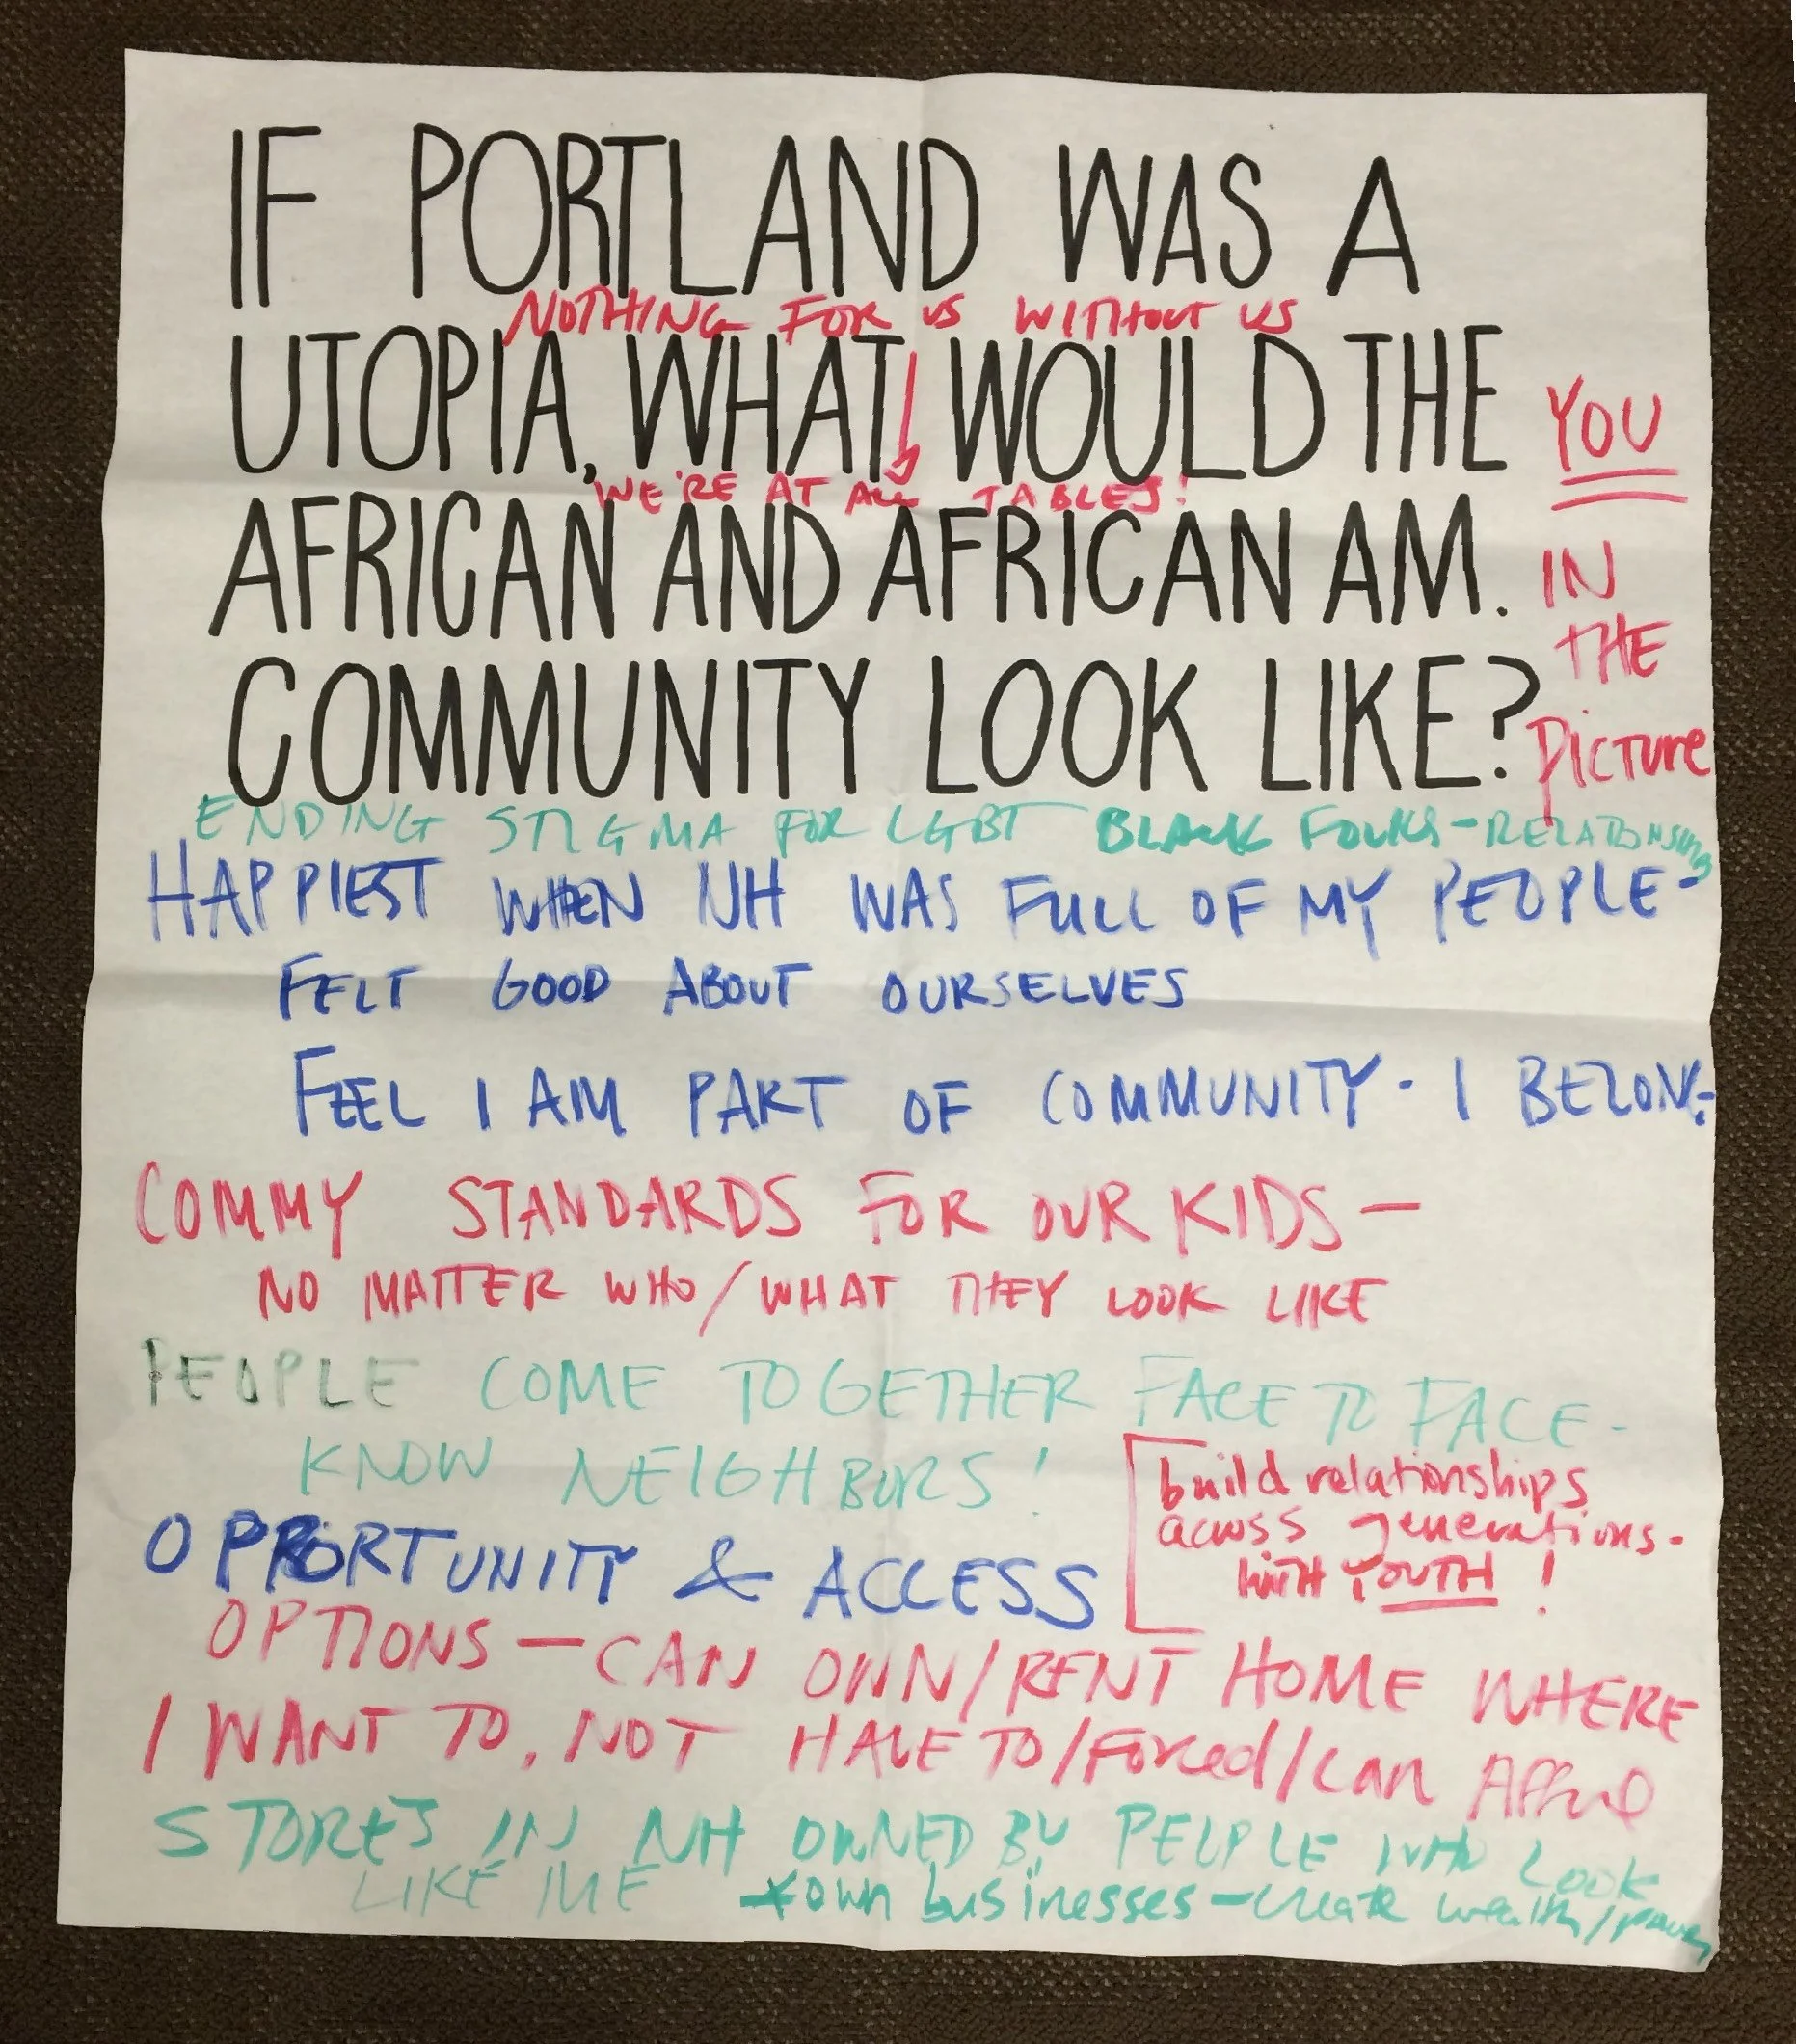 IF PORTLAND WAS A
NOTHING FOR US WITHOUT US
UTOPIA, WHAT WOULD THE
WE'RE AT ALL TABLES!
AFRICAN AND AFRICAN AM.
COMMUNITY LOOK LIKE?
YOU
IN
THE
PICTURE
ENDING STIGMA FOR LGBT BLACK FOLKS - RELATIONSHIPS
HAPPIEST WHEN NH WAS FULL OF MY PEOPLE -
FELT GOOD ABOUT OURSELVES
FEEL I AM PART OF COMMUNITY - I BELONG
COMMY STANDARDS FOR OUR KIDS —
NO MATTER WHO/WHAT THEY LOOK LIKE
PEOPLE COME TOGETHER FACE TO FACE -
KNOW NEIGHBORS!
build relationships
across generations -
with YOUTH!
OPPORTUNITY & ACCESS
OPTIONS — CAN OWN/RENT HOME WHERE
I WANT TO, NOT HAVE TO/Forced/can Afford
STORES IN NH OWNED BY PEOPLE WHO LOOK
LIKE ME own businesses - create wealth/power